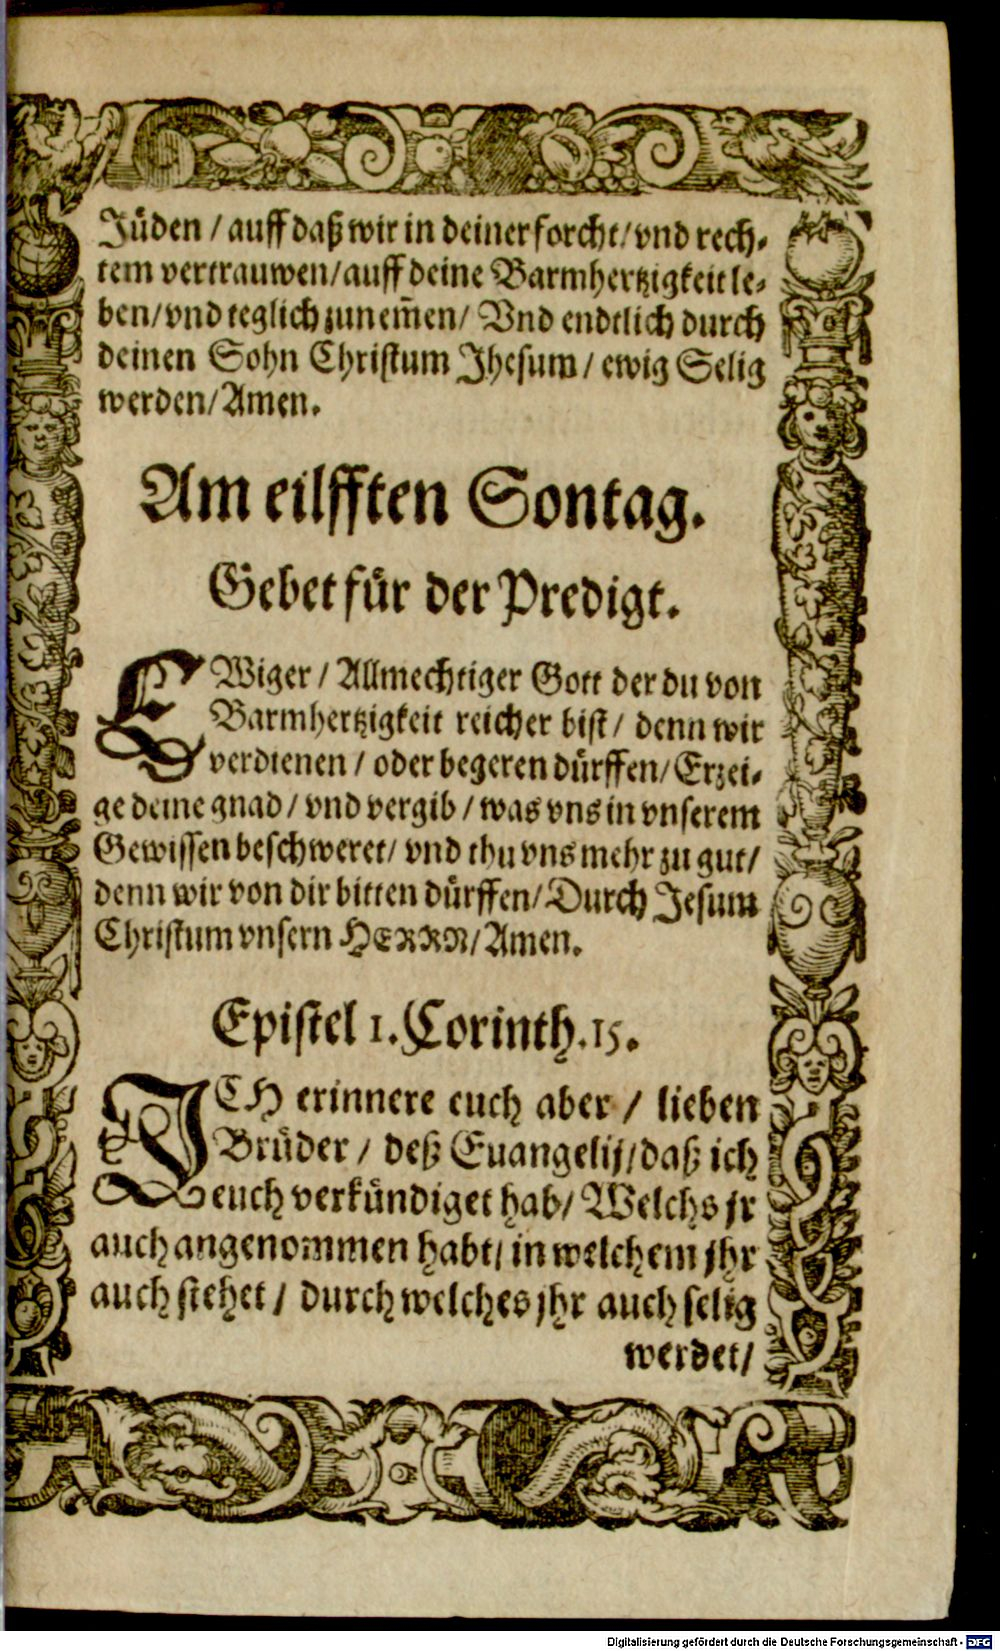 Jüden / auff daß wir in deiner forcht / vnd rech-
tem vertrauwen / auff deine Barmhertzigkeit le-
ben / vnd teglich zunem̃en / Vnd endtlich durch
deinen Sohn Christum Jhesum / ewig Selig
werden / Amen.
Am eilfften Sontag.
Gebet für der Predigt.
EWiger / Allmechtiger Gott der du von
Barmhertzigkeit reicher bist / denn wir
verdienen / oder begeren dürffen / Erzei-
ge deine gnad / vnd vergib / was vns in vnserem
Gewissen beschweret / vnd thu vns mehr zu gut /
denn wir von dir bitten dürffen / Durch Jesum
Christum vnsern HERRN / Amen.
Epistel 1. Corinth. 15.
JCH erinnere euch aber / lieben
Brüder / deß Euangelij / daß ich
euch verkündiget hab / Welchs jr
auch angenommen habt / in welchem jhr
auch stehet / durch welches jhr auch selig
werdet /
Digitalisierung gefördert durch die Deutsche Forschungsgemeinschaft - DFG